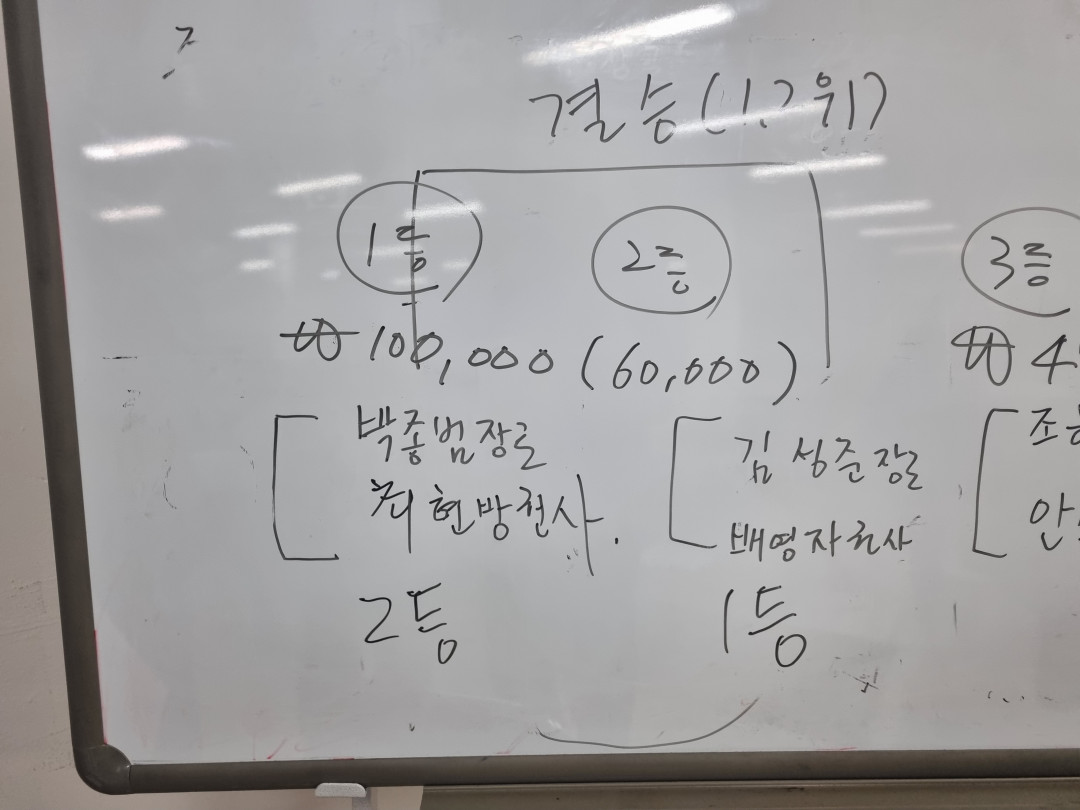 결승(1,2위)
1등 2등 3등
₩ 100,000 (60,000) ₩ 4
박종범장로 김성준장로 조
최현방권사. 배영자권사 안
2등 1등